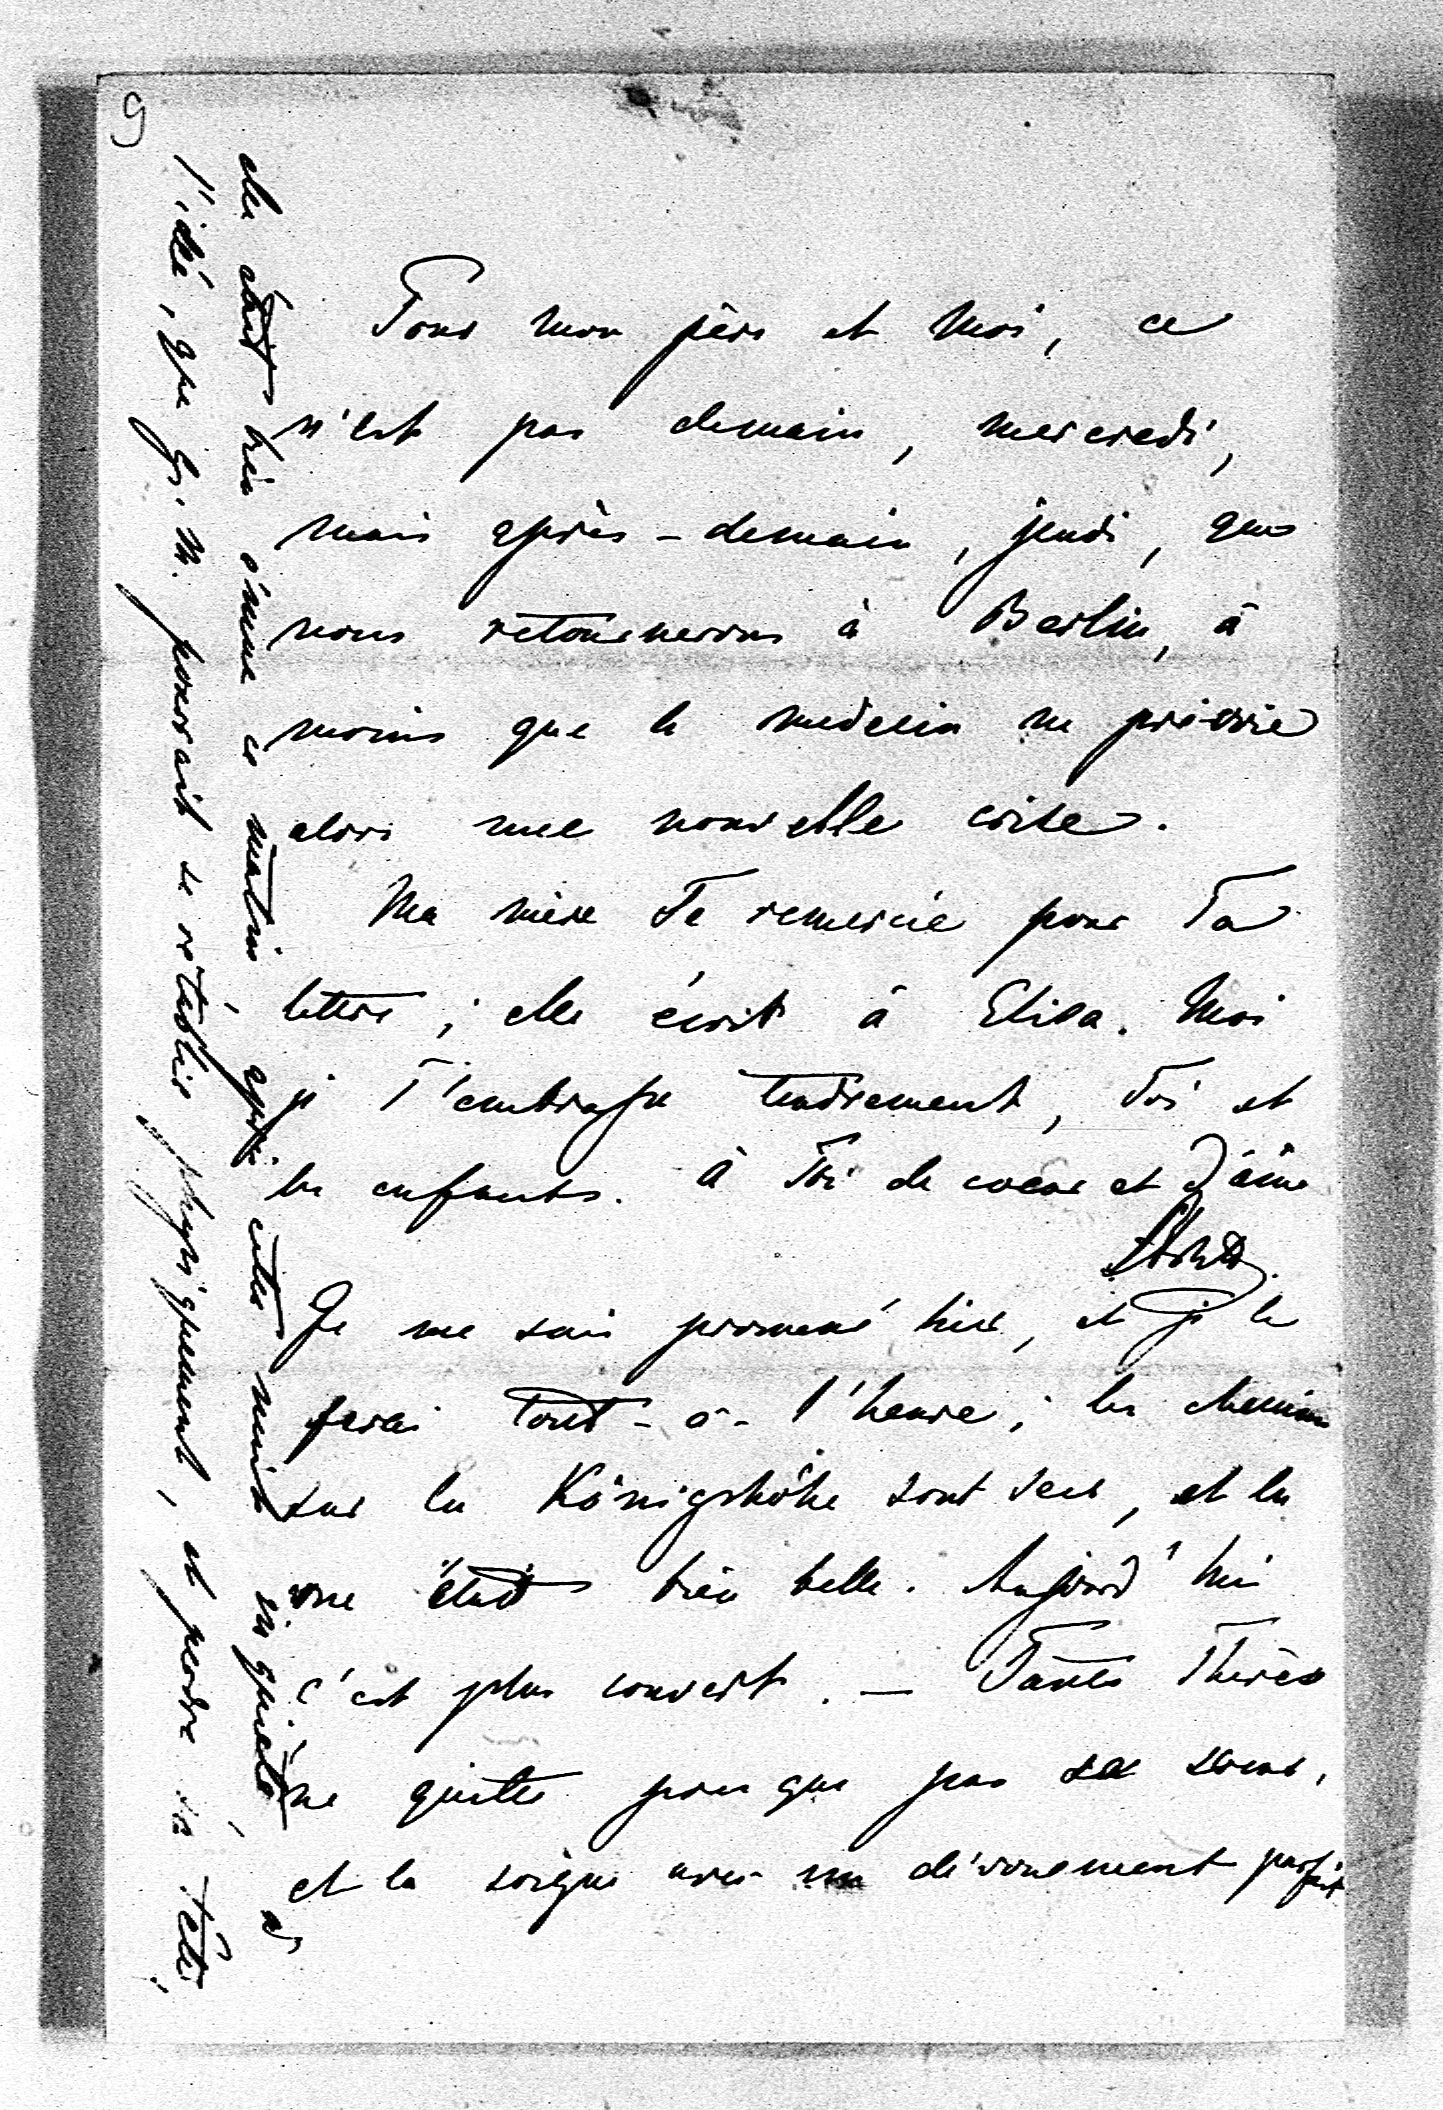 9
Pour mon père et moi, ce
n'est pas demain, mercredi,
mais après-demain, jeudi, que
nous retournerons à Berlin, à
moins que le medecin ne prévoie
alors une nouvelle crise.
Ma mère Te remercie pour Ta
lettre; elle écrit à Elisa. Moi
je T'embrasse tendrement, Toi et
les enfants. à Toi de coeur et d'âme
Je me suis promené hier, et je le
ferai tout-à-l'heure; les chemins
sur la Königshöhe sont secs, et la
vue était bien belle. Aujourd'hui
c'est plus couvert. — Tante Thérèse
ne quitte presque pas sa soeur,
et la soigne avec un dévouement parfait
elle était très émue ce matin, après cette nuit inquiète, à
l'idée, que Gr. M. pourrait se rétablir physiquement, et perdre sa tête!